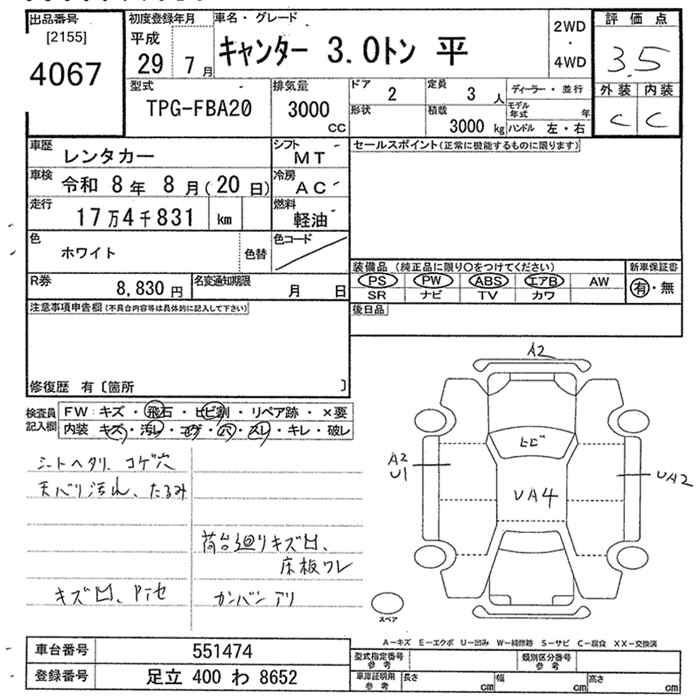 出品番号
[2155]
4067
初度登録年月
平成
29 7月
車名・グレード
キャンター 3.0トン 平
2WD
・
4WD
評価点
3.5
外装 内装
C C
型式
TPG-FBA20
排気量
3000
cc
ドア 2
形状
定員 3人
積載 3000kg
ディーラー・並行
モデル年式 年
ハンドル 左・右
車歴 レンタカー
シフト MT
車検 令和 8年 8月(20日)
冷房 AC
走行 17万4千831 km
燃料 軽油
色 ホワイト
色替
色コード
R券 8,830円
名変通知期限 月 日
セールスポイント(正常に機能するものに限ります)
装備品 (純正品に限り○をつけてください)
PS PW ABS エアB AW
SR ナビ TV カワ
新車保証書
有・無
後日品
注意事項申告欄(不具合内容等は具体的に記入して下さい)
修復歴 有〔箇所 〕
検査員
記入欄
FW:キズ・飛石・ヒビ割・リペア跡・×要
内装:キズ・汚レ・コゲ・穴・スレ・キレ・破レ
シートヘタリ、コゲ穴
天バリ汚れ、たるみ
荷台廻りキズ凹、
床板ワレ
キズ凹、
カンバンアリ
A2
ヒビ
A2
U1
UA4
UA2
スペア
A－キズ E－エクボ U－凹み W－補修跡 S－サビ C－腐食 XX－交換済
車台番号 551474
登録番号 足立 400 わ 8652
型式指定番号
参考
類別区分番号
参考
車庫証明用
参考
長さ cm
幅 cm
高さ cm